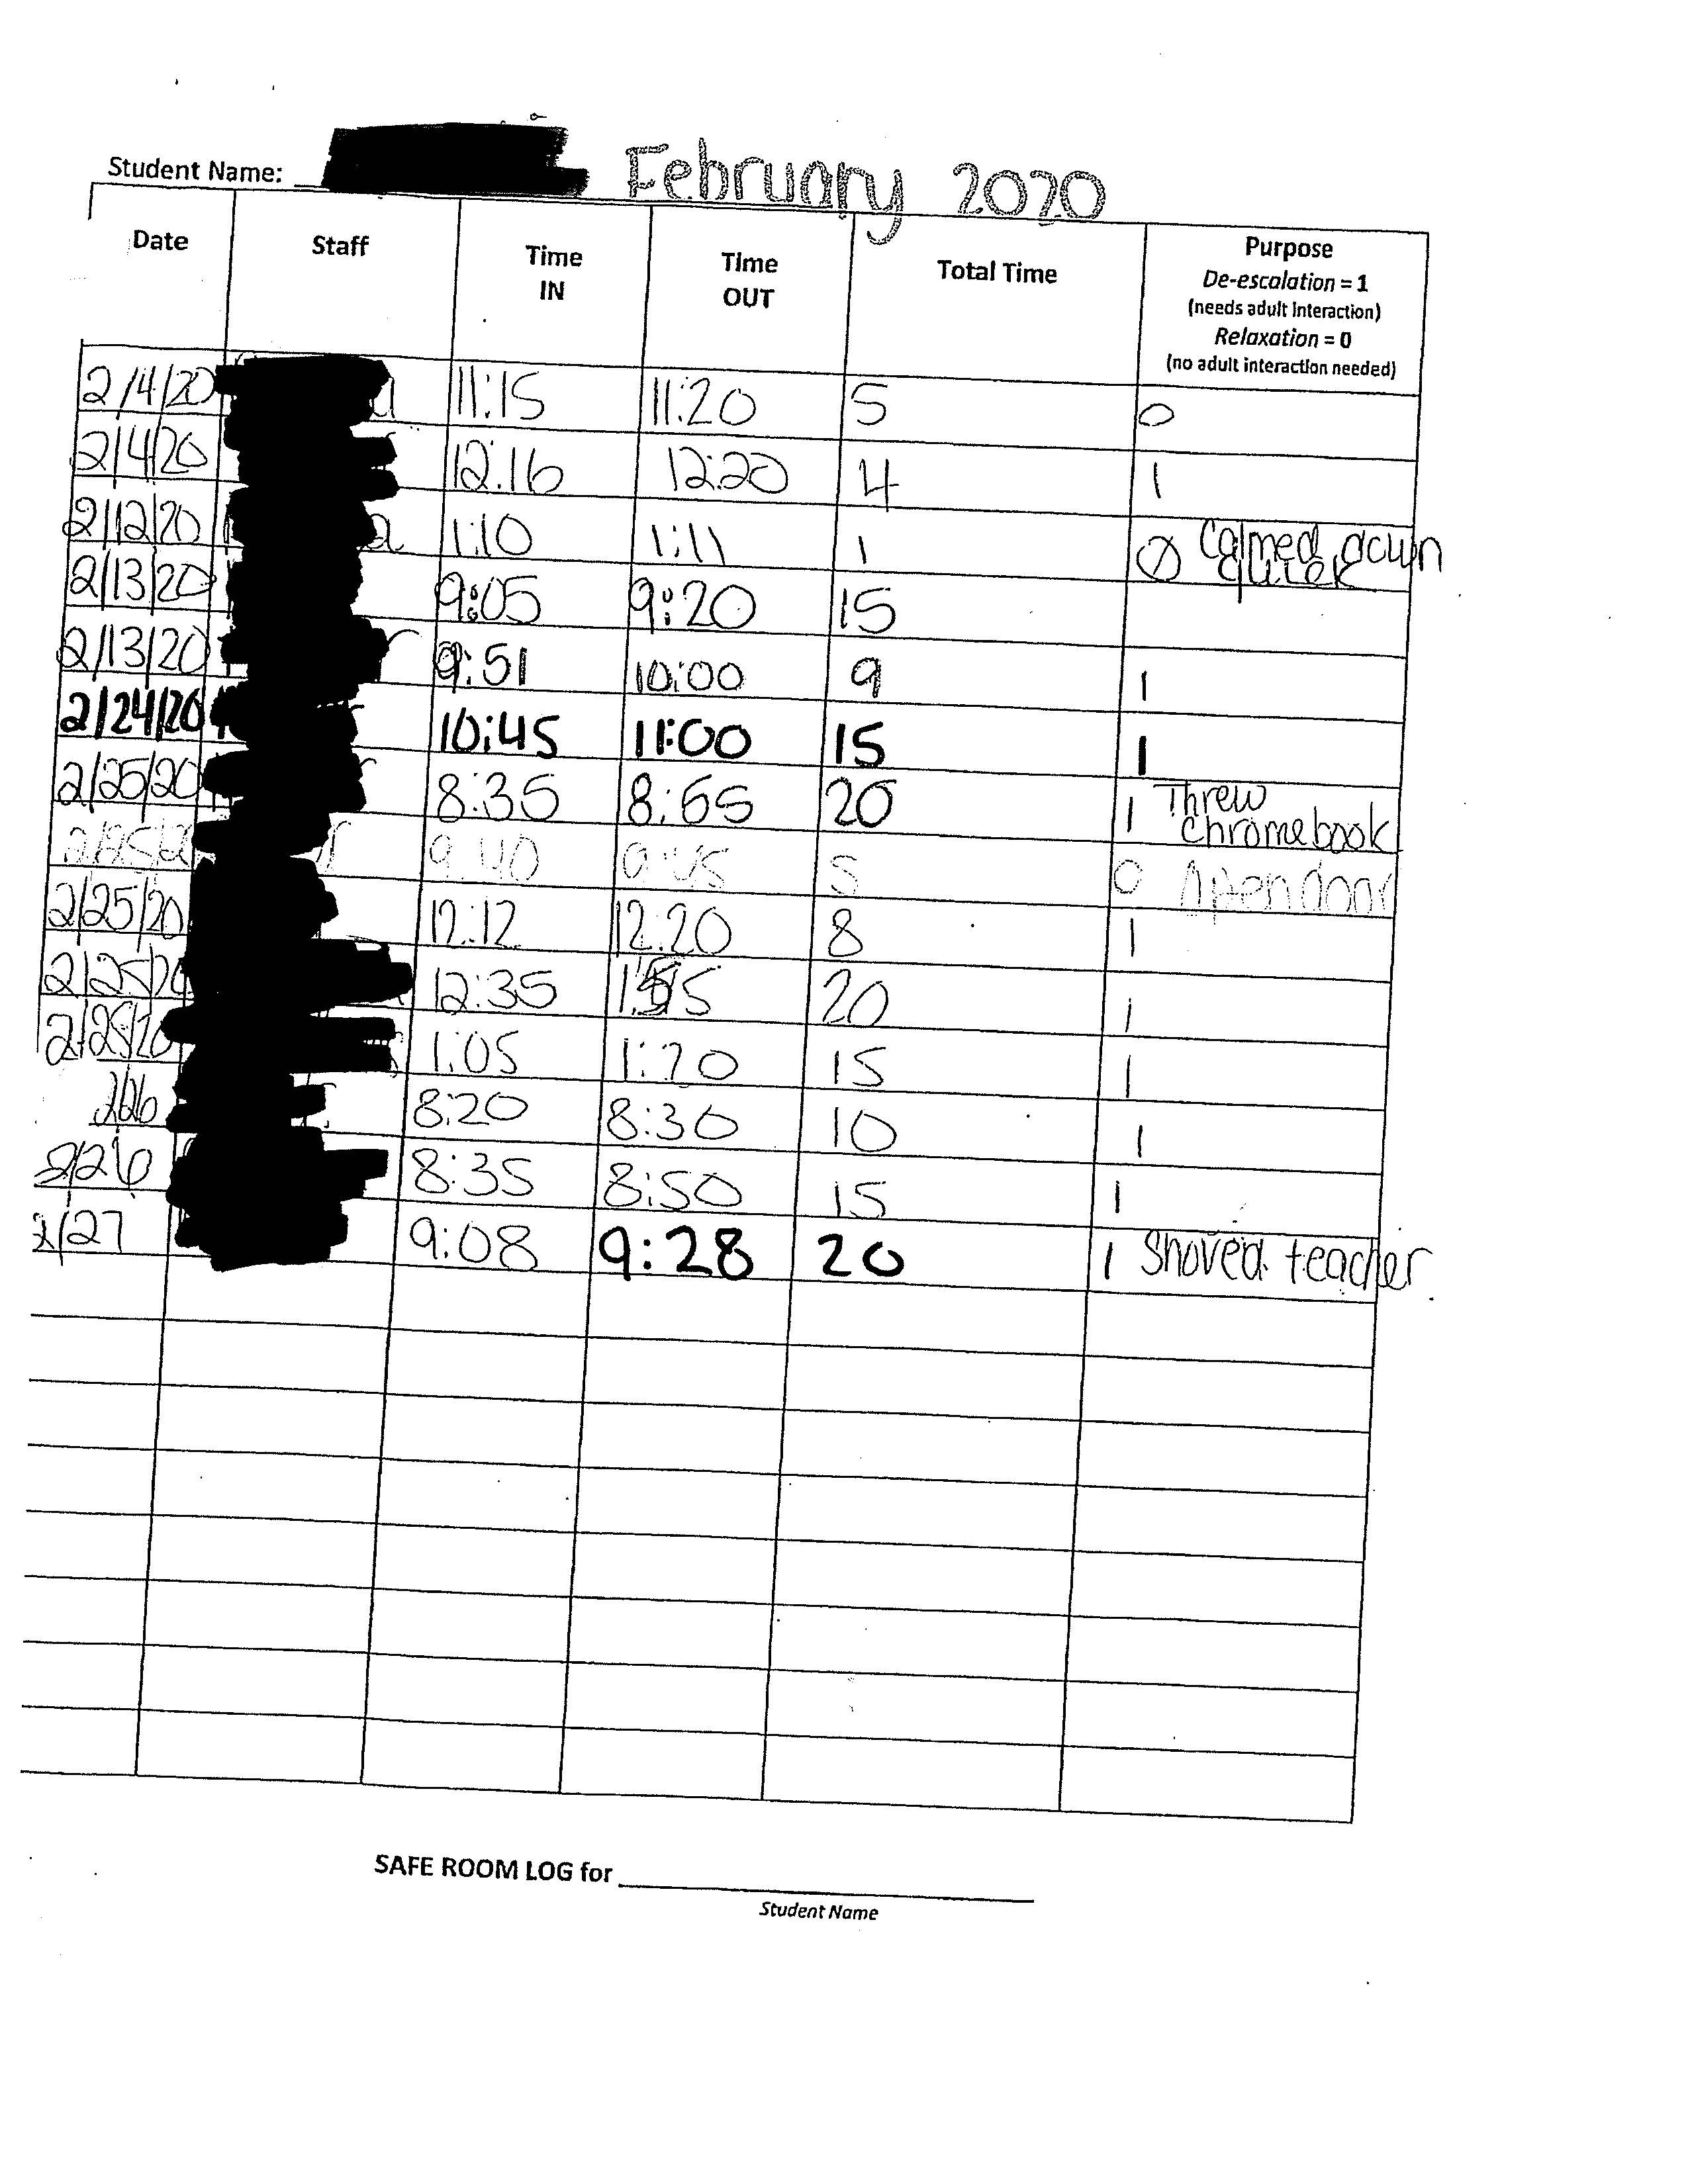 Student Name: February 2020
Date Staff Time IN Time OUT Total Time Purpose
De-escalation = 1
(needs adult interaction)
Relaxation = 0
(no adult interaction needed)
2/4/20 11:15 11:20 5 0
2/4/20 12:16 12:20 4 1
2/12/20 1:10 1:11 1 0 Calmed down
quick
2/13/20 9:05 9:20 15
2/13/20 9:51 10:00 9 1
2/24/20 10:45 11:00 15 1
2/25/20 8:35 8:55 20 1 Threw
chromebook
2/25/2 9:40 9:45 5 0 Open door
2/25/20 12:12 12:20 8 1
2/25/20 12:35 20 1
2/25/20 1:05 1:20 15 1
2/26 8:20 8:30 10 1
2/26 8:35 8:50 15 1
2/27 9:08 9:28 20 1 Shoved teacher
SAFE ROOM LOG for
Student Name